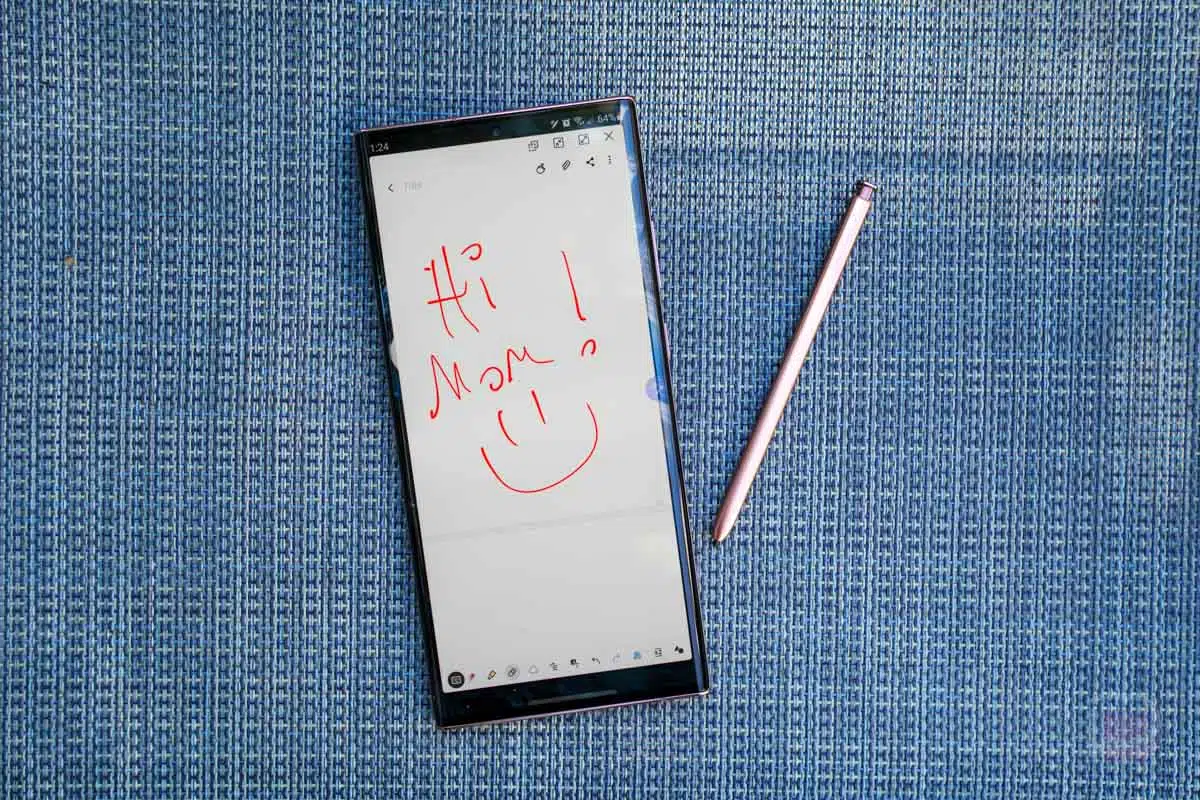 1:24
64%
Title
Hi !
Mom